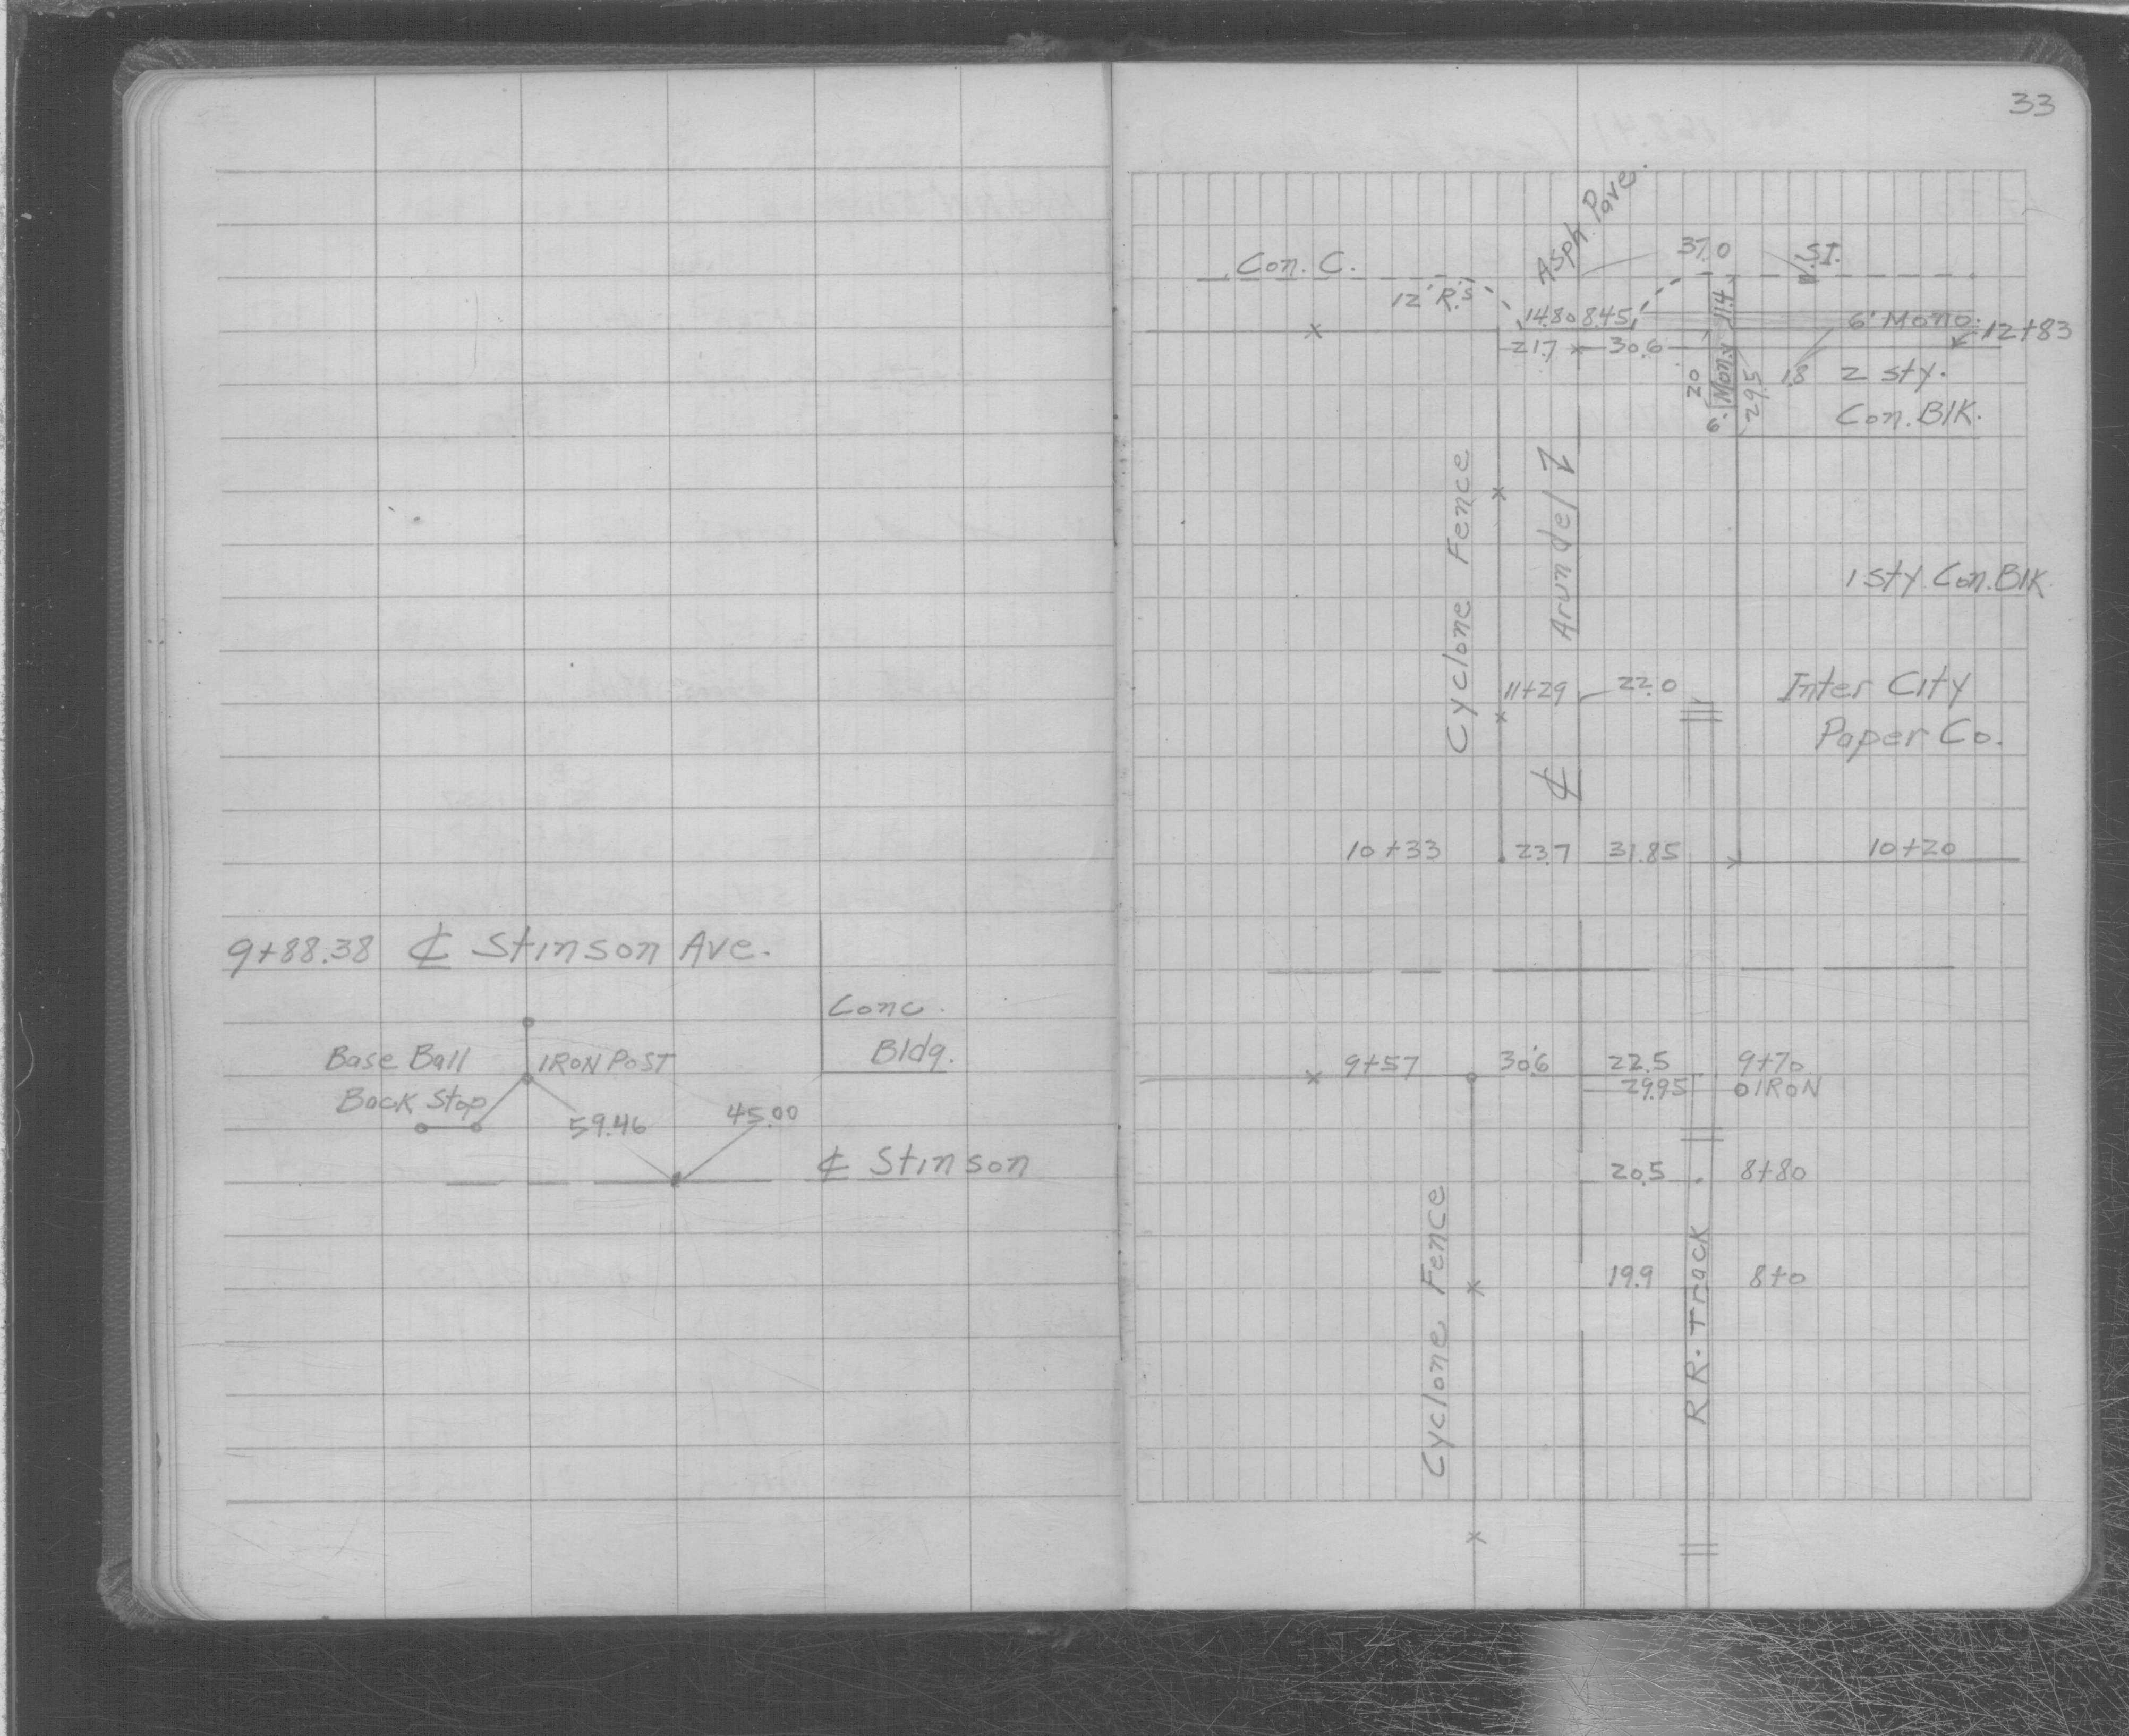 9+88.38 ℄ Stinson Ave.
Conc.
Bldg.
Base Ball
IRON POST
Back Stop
59.46
45.00
℄ Stinson
33
Asph. Pave.
Con. C.
37.0
V.S.I.
12' R.s
14.80 8.45
11.4
6' Mono.
12+83
21.7
30.6
20
6' Mon.
29.5
1.8
2 sty.
Con. Blk.
Cyclone Fence
℄ Arundel
1 sty. Con. Blk.
11+29
22.0
Inter City
Paper Co.
10+33
23.7
31.85
10+20
9+57
30.6
22.5
9+70
29.95
IRON
20.5
8+80
Cyclone Fence
19.9
8+0
RR. Track